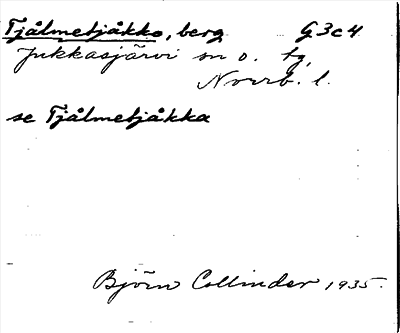 Tjålmetjåkko, berg G3c4
Jukkasjärvi sn o. tg,
Norrb. l.
se Tjålmetjåkka
Björn Collinder 1935.